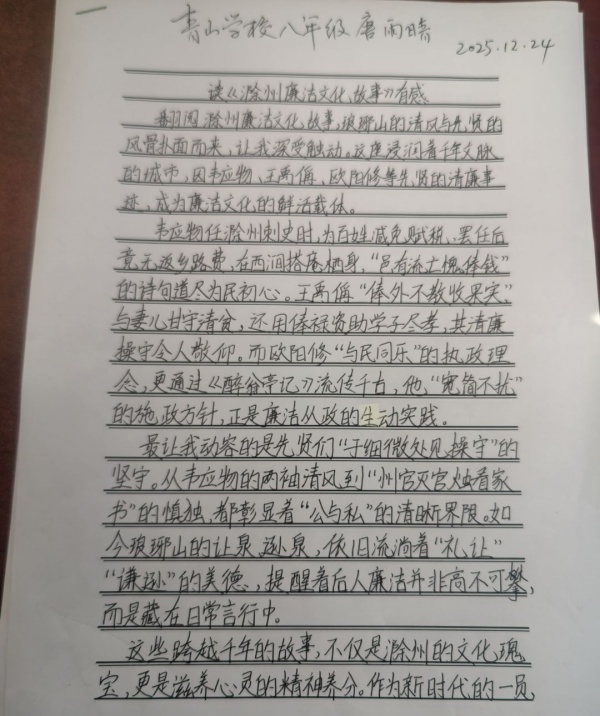 青山学校八年级 唐雨晴
2025.12.24
读《滁州廉洁文化故事》有感
翻阅滁州廉洁文化故事,琅琊山的清风与先贤的
风骨扑面而来,让我深受触动。这座浸润着千年文脉
的城市,因韦应物、王禹偁、欧阳修等先贤的清廉事
迹,成为廉洁文化的鲜活载体。
韦应物任滁州刺史时,为百姓减免赋税,罢任后
竟无返乡路费,在西涧搭庵栖身,“邑有流亡愧俸钱”
的诗句道尽为民初心。王禹偁“俸外不教收果实”,
与妻儿甘守清贫,还用俸禄资助学子尽孝,其清廉
操守令人敬仰。而欧阳修“与民同乐”的执政理
念,更通过《醉翁亭记》流传千古,他“宽简不扰”
的施政方针,正是廉洁从政的生动实践。
最让我动容的是先贤们“于细微处见操守”的
坚守。从韦应物的两袖清风到“州官灭官烛看家
书”的慎独,都彰显着“公与私”的清晰界限。如
今琅琊山的让泉、逊泉,依旧流淌着“礼让”
“谦逊”的美德,提醒着后人廉洁并非高不可攀,
而是藏在日常言行中。
这些跨越千年的故事,不仅是滁州的文化瑰
宝,更是滋养心灵的精神养分。作为新时代的一员,